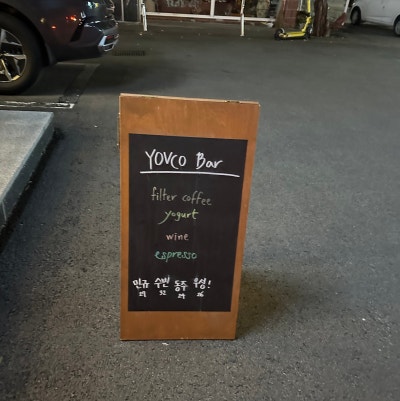 YOVCO Bar
filter coffee
yogurt
wine
espresso
민규 수빈 동주 우성!
29 32 29 26